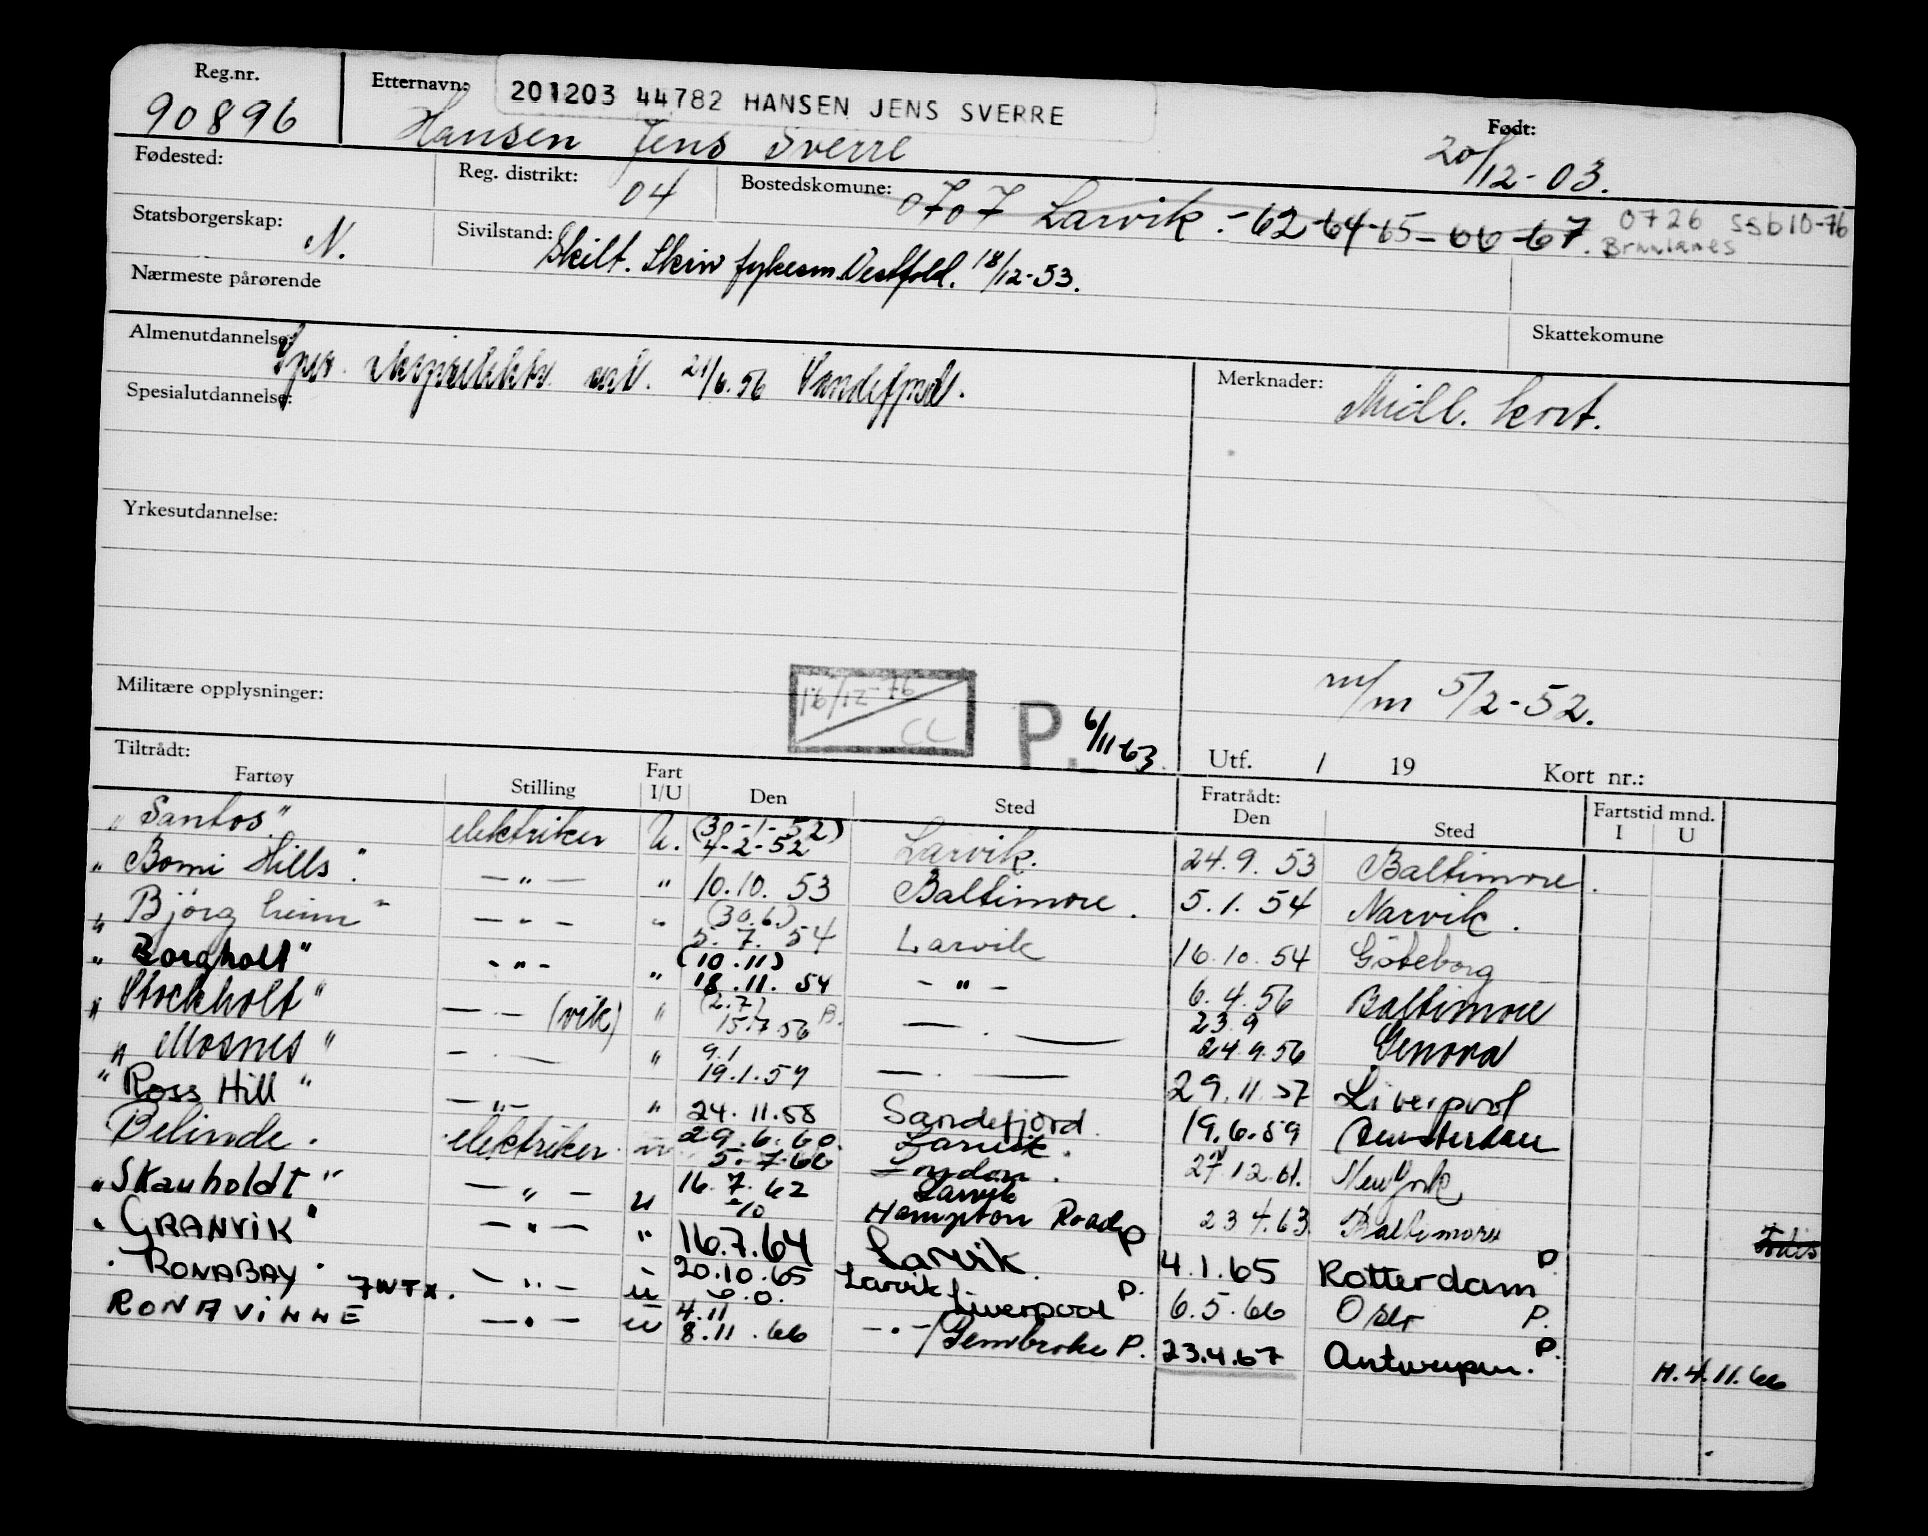 Reg.nr. Etternavn: 201203 44782 HANSEN JENS SVERRE Født:
90896 Hansen Jens Sverre 20/12-03.
Fødested: Reg. distrikt: 04 Bostedskomune: 0707 Larvik.-62-64-65-66-67. 0726 SSb10-76
Brunlanes
Statsborgerskap: N. Sivilstand: Skilt. Skriv fylkesm. Vestfold. 18/12-53.
Nærmeste pårørende
Skattekomune
Almenutdannelse: 21/6.56 Sandefjord.
Spesialutdannelse:
Merknader: Midl. kort.
Yrkesutdannelse:
m/m 5/2-52.
Militære opplysninger: 16/12-76 CL P. 6/11-63
Utf. / 19 Kort nr.:
Tiltrådt: Fratrådt: Fartstid mnd.
Fartøy Stilling Fart I/U Den Sted Den Sted I U
"Santos" elektriker U. (30-1-52) 4-2-52 Larvik. 24.9.53 Baltimore.
"Bomi Hills". -"- " 10.10.53 Baltimore. 5.1.54 Narvik.
"Bjørgheim" -"- " (30.6) 5.7.54 Larvik 16.10.54 Göteborg
"Borgholt" -"- (10.11) 18.11.54 -"- 6.4.56 Baltimore
"Stockholt" -"- (vik) " (2.7) 15.7.56 B. -"- 23.9 24.9.56 Genova
"Mosnes" -"- " 9.1 19.1.57 -"- 29.11.57 Liverpool
"Ross Hill" -"- " 24.11.58 Sandefjord. 19.6.59 Amsterdam
Belinde. elektriker 29.6.60. 5.7.60 Larvik. London. 27.12.61. New York
"Skauholdt" -"- u 16.7.62 2/10 Larvik Hampton Roads P 23.4.63. Baltimore
"GRANVIK" -"- " 16.7.64 Larvik. 4.1.65 Rotterdam P.
"RONABAY" -"- u 20.10.65 Larvik Liverpool P. 6.5.66 Oslo P.
RONAVINNE 7WTX. -"- u 4.11 8.11.66 -"- / Pembroke P. 23.4.67 Antwerpen. P. H.4.11.66